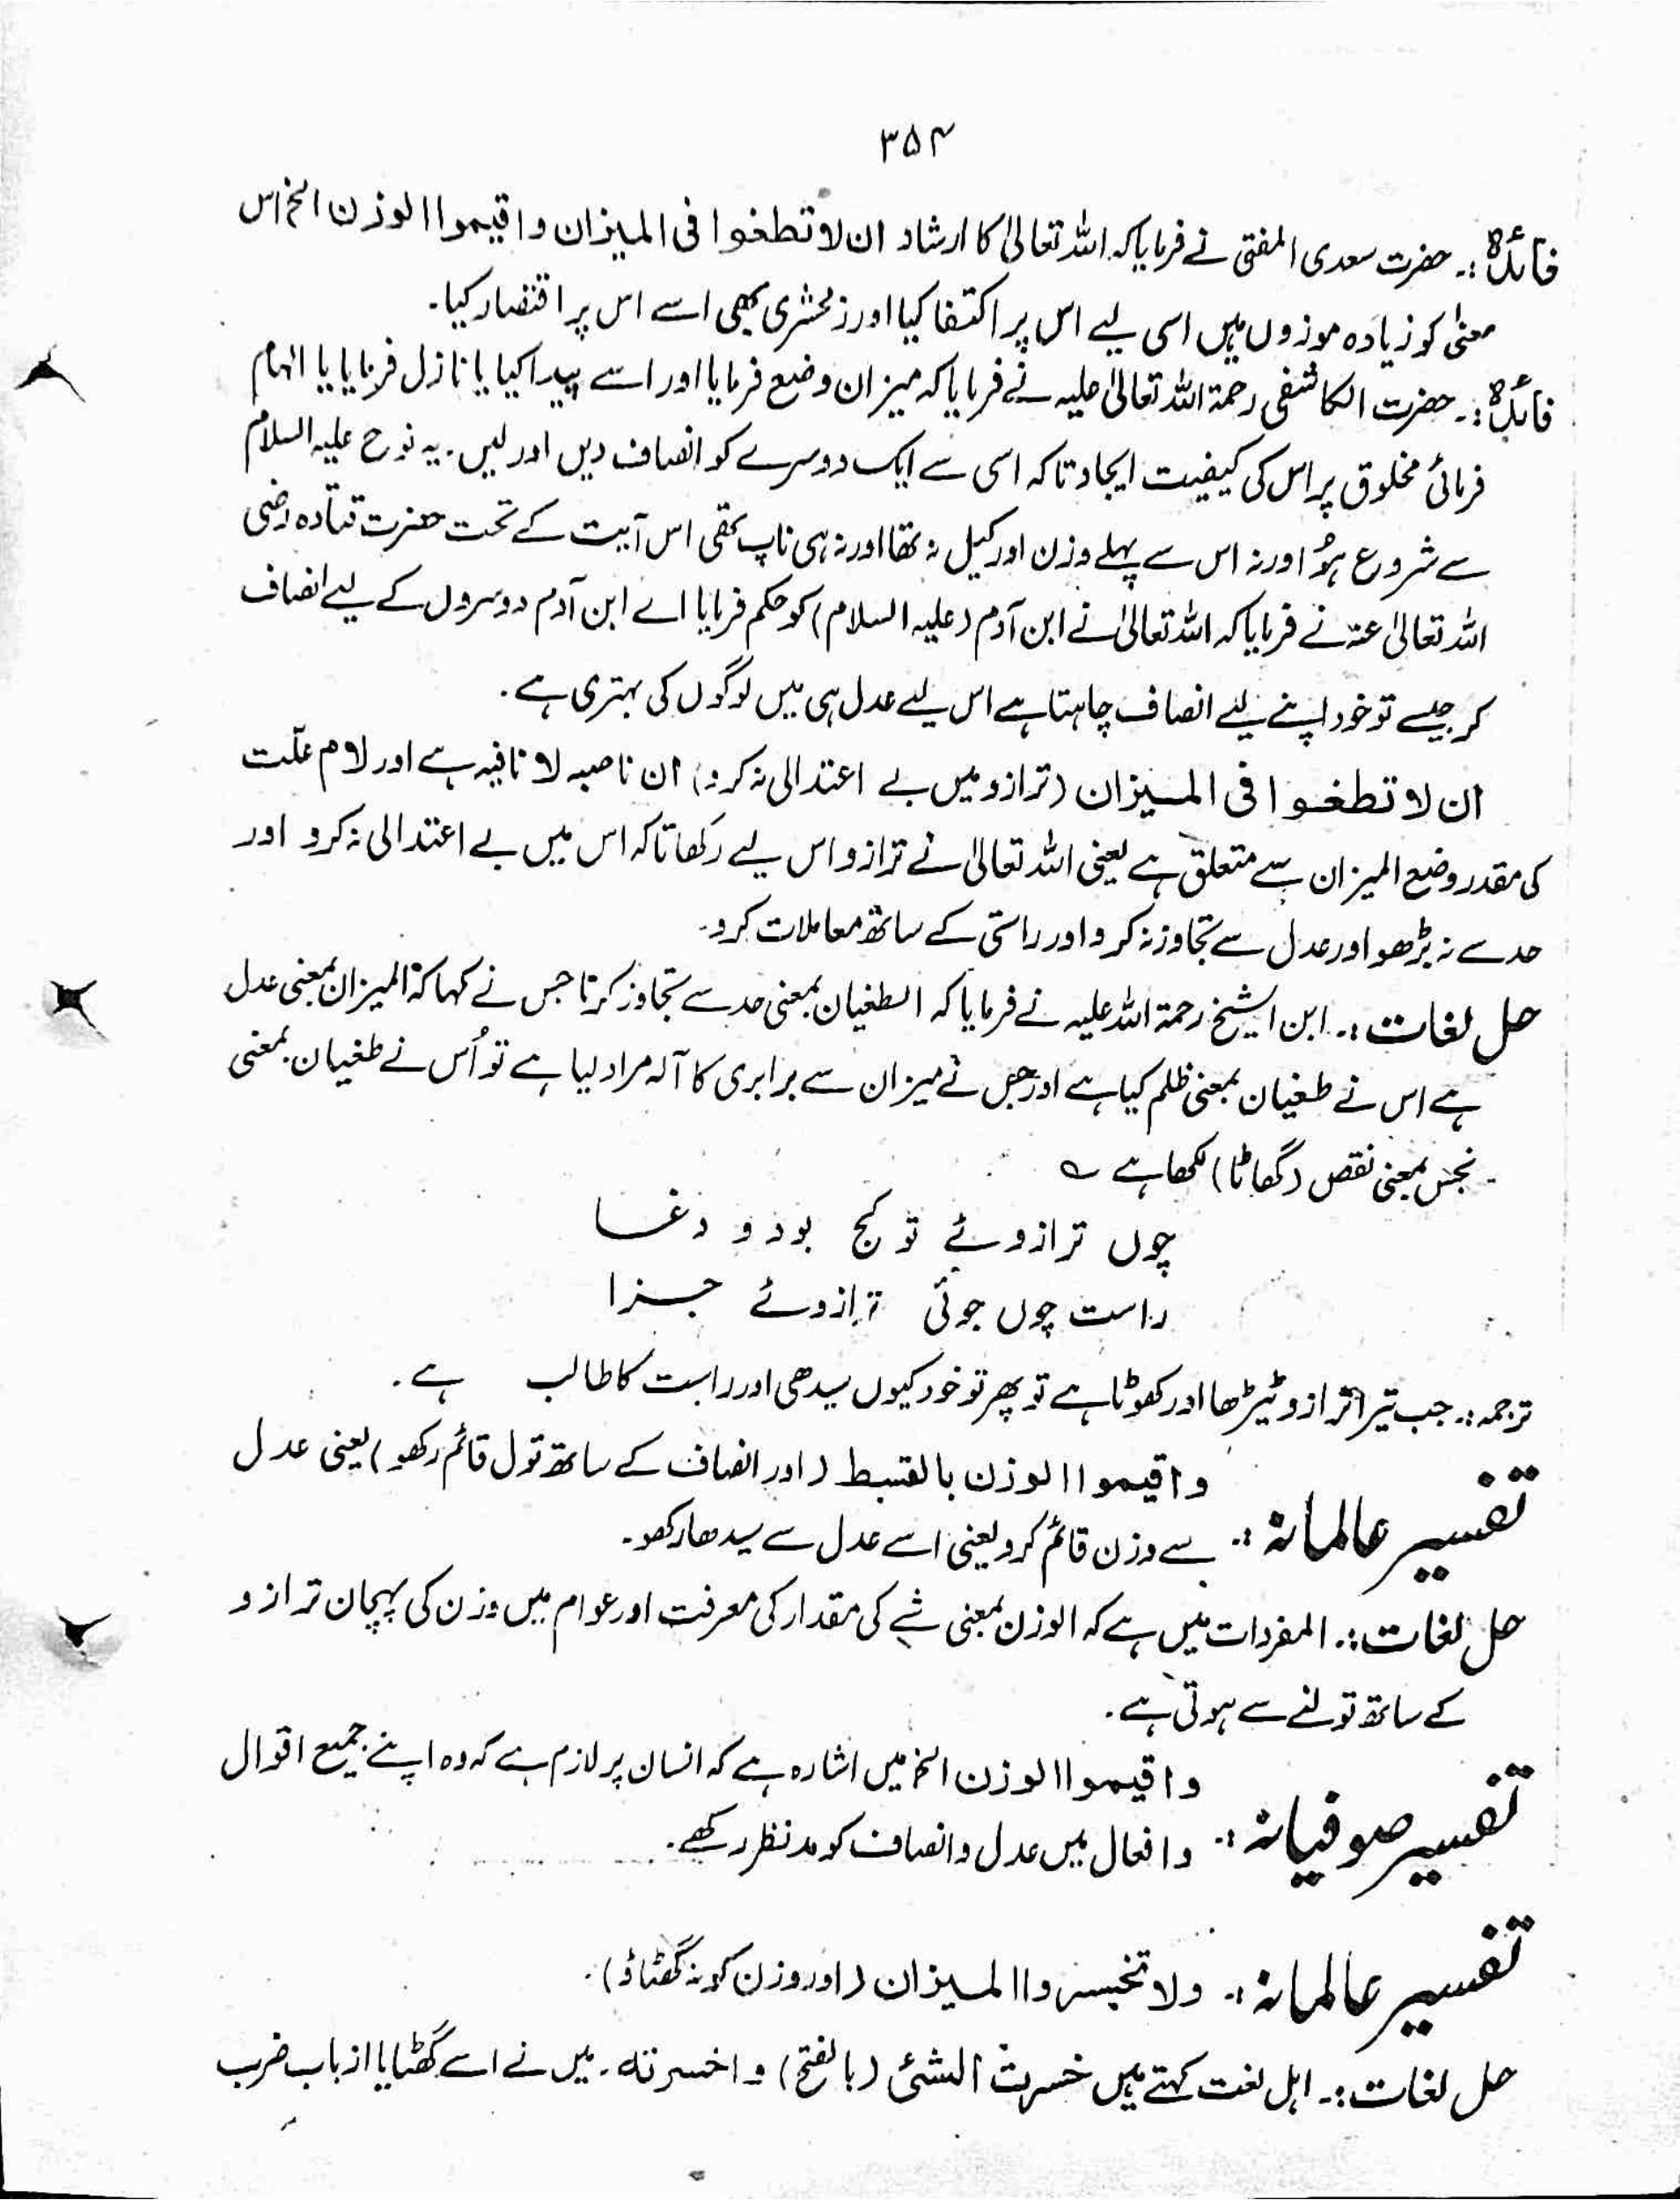 ۳۵۴
فائدہ:۔ حضرت سعدی المفتی نے فرمایا کہ اللہ تعالیٰ کا ارشاد ان لا تطغوا فی المیزان واقیموا الوزن الخ اس
معنیٰ کو زیادہ موزوں ہیں اسی لیے اس پر اکتفا کیا اور زمخشری بھی اسے اس پر اقتصار کیا۔
فائدہ:۔ حضرت الکاشفی رحمۃ اللہ تعالیٰ علیہ نے فرمایا کہ میزان وضع فرمایا اور اسے پیدا کیا یا نازل فرمایا یا الہام
فرمائی مخلوق پر اس کی کیفیت ایجاد تاکہ اسی سے ایک دوسرے کو انصاف دیں اور لیں۔ یہ نوح علیہ السلام
سے شروع ہوُا ورنہ اس سے پہلے وزن اور کیل نہ تھا اور نہ ہی ناپ تھی اس آیت کے تحت حضرت قتادہ رضی
اللہ تعالیٰ عنہ نے فرمایا کہ اللہ تعالیٰ نے ابن آدم (علیہ السلام) کو حکم فرمایا اے ابن آدم دوسروں کے لیے انصاف
کر جیسے تو خود اپنے لیے انصاف چاہتا ہے اس لیے عدل ہی میں لوگوں کی بہتری ہے۔
ان لا تطغوا فی المیزان (ترازو میں بے اعتدالی نہ کرو) ان ناصبہ لا نافیہ ہے اور لام علّت
کی مقدر وضع المیزان سے متعلق ہے یعنی اللہ تعالیٰ نے ترازو اس لیے رکھا تاکہ اس میں بے اعتدالی نہ کرو اور
حد سے نہ بڑھو اور عدل سے تجاوز نہ کرو اور راستی کے ساتھ معاملات کرو۔
حل لغات:۔ ابن الشیخ رحمۃ اللہ علیہ نے فرمایا کہ الطغیان بمعنی حد سے تجاوز کرنا جس نے کہا کہ المیزان بمعنی عدل
ہے اس نے طغیان بمعنی ظلم کیا ہے اور جس نے میزان سے برابری کا آلہ مراد لیا ہے تو اُس نے طغیان بمعنی
نجس بمعنی نقص (گھاٹا) لکھا ہے ؎
چوں ترازوئے تو کج بود و دغا
راست چوں جوئی ترازوئے جزا
ترجمہ:۔ جب تیرا ترازو ٹیڑھا اور کھوٹا ہے تو پھر تو خود کیوں سیدھی اور راست کا طالب ہے۔
تفسیر عالمانہ:۔ واقیموا الوزن بالقسط (اور انصاف کے ساتھ تول قائم رکھو) یعنی عدل
سے وزن قائم کرو یعنی اسے عدل سے سیدھا رکھو۔
حل لغات:۔ المفردات میں ہے کہ الوزن بمعنی شے کی مقدار کی معرفت اور عوام میں وزن کی پہچان ترازو
کے ساتھ تولنے سے ہوتی ہے۔
تفسیر صوفیانہ:۔ واقیموا الوزن الخ میں اشارہ ہے کہ انسان پر لازم ہے کہ وہ اپنے جمیع اقوال
وافعال میں عدل وانصاف کو مدنظر رکھے۔
تفسیر عالمانہ:۔ ولا تخسروا المیزان (اور وزن کو نہ گھٹاؤ)۔
حل لغات:۔ اہل لغت کہتے ہیں خسرت الشئی (بالفتح) واخسرتہ۔ میں نے اسے گھٹایا از باب ضرب